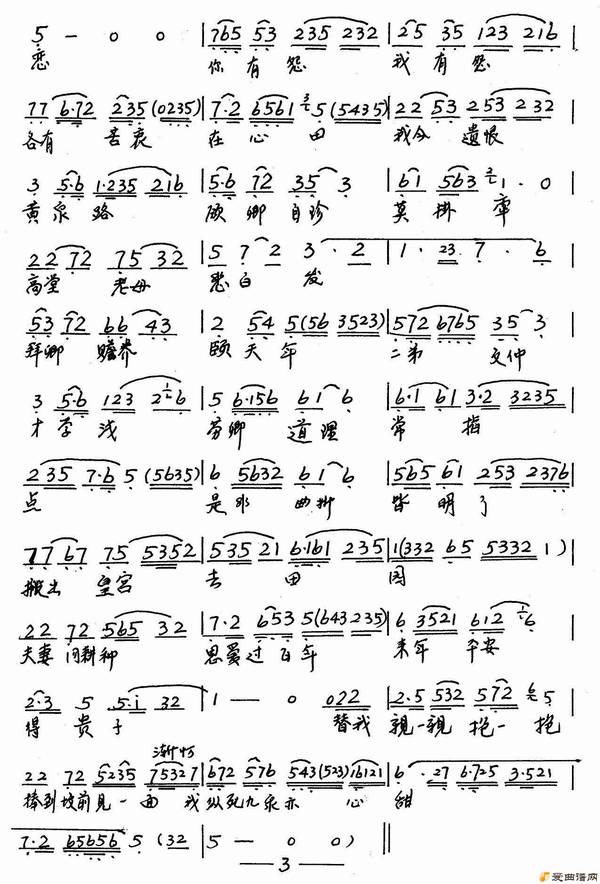 5 — 0 0 | 765 53 235 232 | 25 35 123 216 |
恋 你有怨 我有怨
77 6·72 235 (0235) | 7·2 6561 5 (5435) | 22 53 253 232
各有 苦衷 在心田 我今 遗恨
3 5·6 1·235 216 | 5·6 72 35 3 | 61 563 1 · 0
黄泉路 顾卿自珍 莫掛牵
22 72 75 32 | 5 7 2 3 · 2 | 1 · 23 7 · 6
高堂 老母 悲白发
53 72 66 43 | 2 54 5(56 3523) | 572 6765 35 3
拜卿 赡养 颐天年 二弟 文仲
3 5·6 123 2 6 | 5 6·156 61 6 | 6·1 61 3·2 3235
才学浅 劳卿 道理 常 指
235 7·6 5 (5635) | 6 5632 61 6 | 565 61 253 2376
点 是非 曲折 皆明了
77 67 75 5352 | 535 21 6·161 235 | 1(332 65 5332 1)
搬出 皇宫 去田园
22 72 565 32 | 7·2 653 5(643 235) | 6 3521 612 6
夫妻 同耕种 恩爱过百年 来年 平安
2·3 5 5·i 32 | 1 — 0 022 | 2·5 532 572 5
得贵子 替我 親一親 抱一抱
渐忙
22 72 5235 75327 | 672 576 543(523) 16121 | 6 · 27 6·725 3·521
捧到坟前見一面 我纵死九泉亦 心 甜
7·2 65656 5 (32 | 5 — 0 0) ‖
3
爱曲谱网